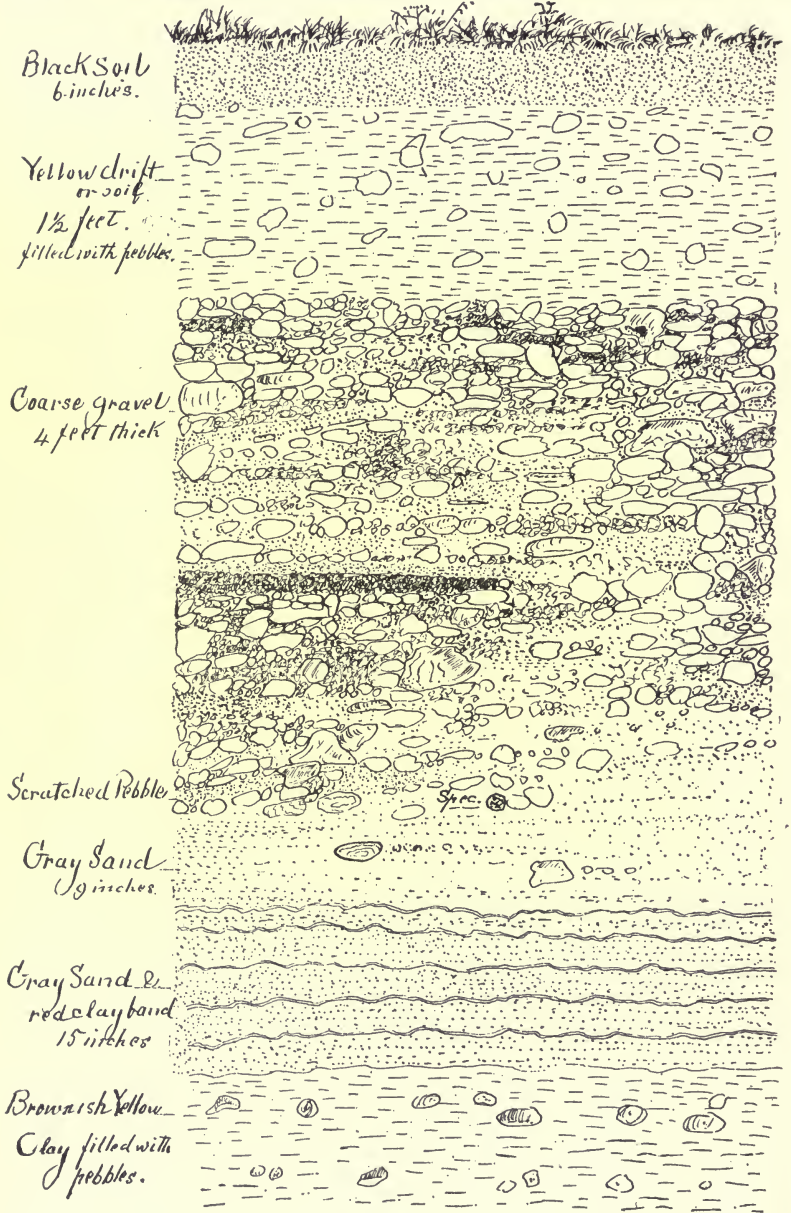 Black Soil
6 inches.
Yellow drift
or soil
1½ feet.
filled with pebbles.
Coarse gravel
4 feet thick
Scratched Pebbles
Spec.
Gray Sand
9 inches.
Gray Sand &
red clay band
15 inches
Brownish Yellow
Clay filled with
pebbles.